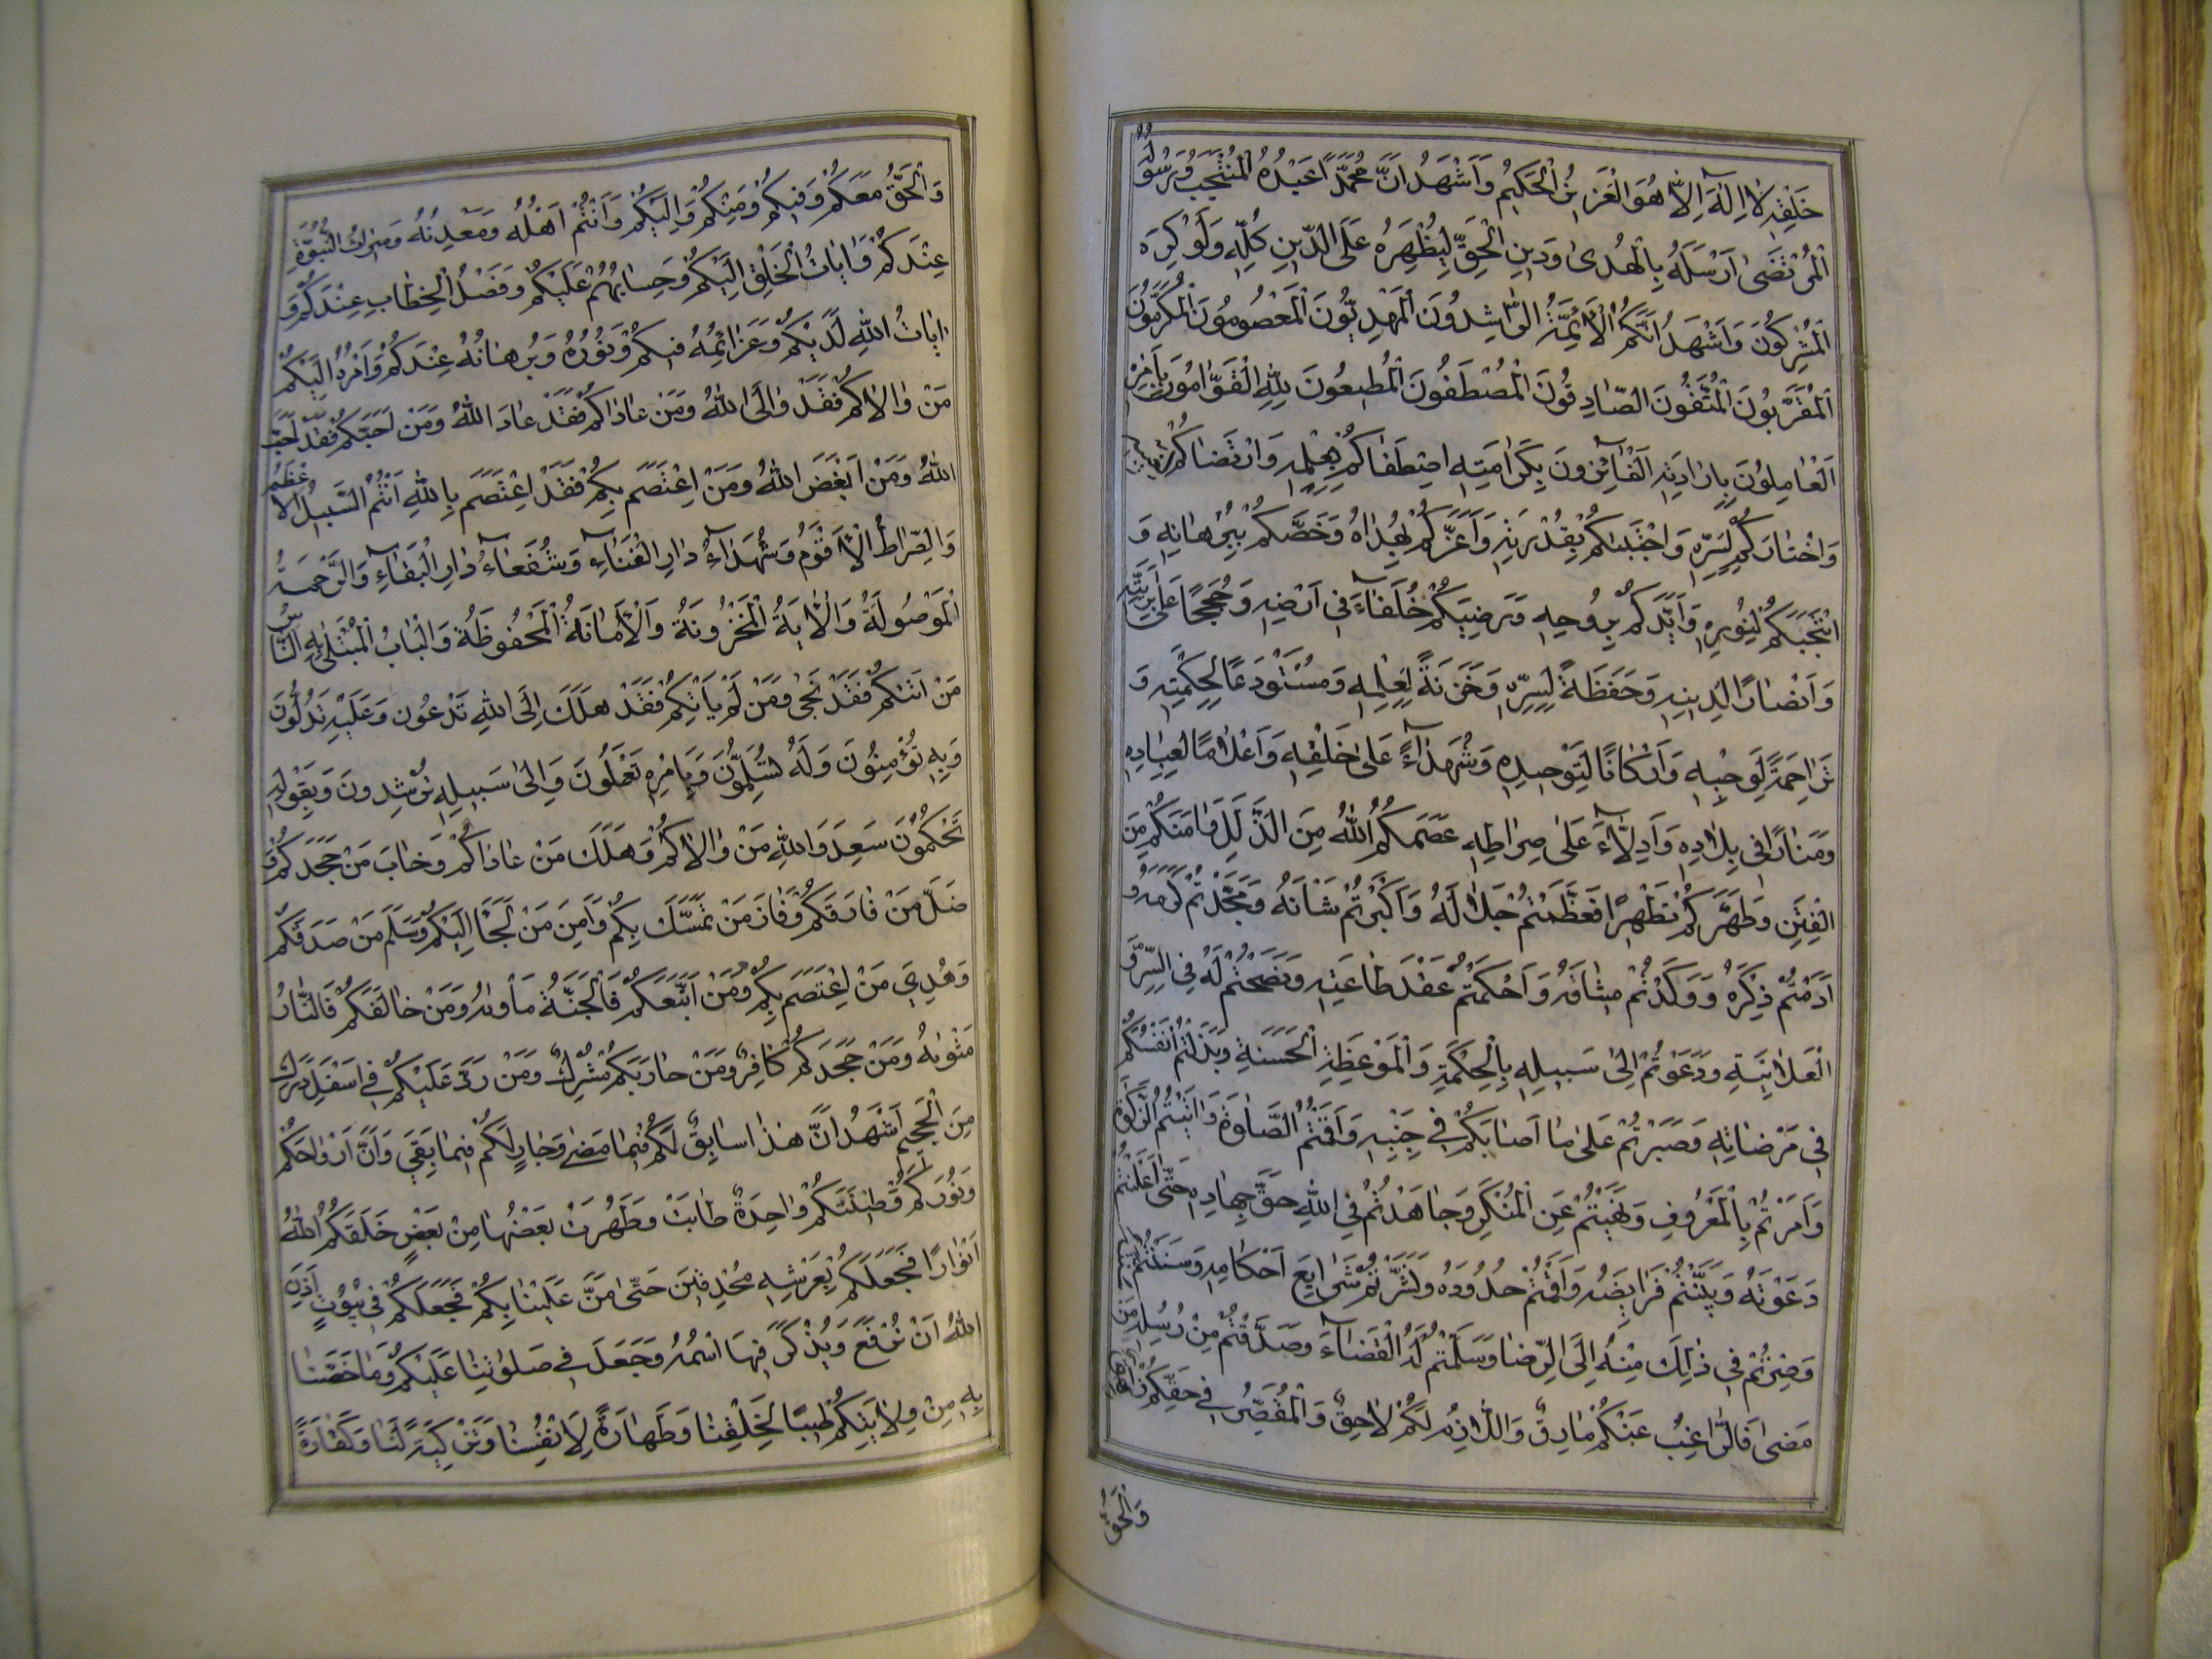 خَلْقِهِ لَا اِلٰهَ اِلَّا هُوَ الْعَزِیزُ الْحَكِیمُ وَاَشْهَدُ اَنَّ مُحَمَّدًا عَبْدُهُ الْمُنْتَجَبُ وَرَسُولُهُ
الْمُرْتَضٰی اَرْسَلَهُ بِالْهُدٰی وَدِینِ الْحَقِّ لِیُظْهِرَهُ عَلَی الدِّینِ كُلِّهِ وَلَوْ كَرِهَ
الْمُشْرِكُونَ وَاَشْهَدُ اَنَّكُمُ الْاَئِمَّةُ الرَّاشِدُونَ الْمَهْدِیُّونَ الْمَعْصُومُونَ الْمُكَرَّمُونَ
الْمُقَرَّبُونَ الْمُتَّقُونَ الصَّادِقُونَ الْمُصْطَفَوْنَ الْمُطِیعُونَ لِلّٰهِ الْقَوَّامُونَ بِاَمْرِهِ
الْعَامِلُونَ بِاِرَادَتِهِ الْفَآئِزُونَ بِكَرَامَتِهِ اصْطَفَاكُمْ بِعِلْمِهِ وَارْتَضَاكُمْ لِغَیْبِهِ
وَاخْتَارَكُمْ لِسِرِّهِ وَاجْتَبٰىكُمْ بِقُدْرَتِهِ وَاَعَزَّكُمْ بِهُدَاهُ وَخَصَّكُمْ بِبُرْهَانِهِ وَ
انْتَجَبَكُمْ لِنُورِهِ وَاَیَّدَكُمْ بِرُوحِهِ وَرَضِیَكُمْ خُلَفَآءَ فِی اَرْضِهِ وَحُجَجًا عَلٰی بَرِیَّتِهِ
وَاَنْصَارًا لِدِینِهِ وَحَفَظَةً لِسِرِّهِ وَخَزَنَةً لِعِلْمِهِ وَمُسْتَوْدَعًا لِحِكْمَتِهِ وَ
تَرَاجِمَةً لِوَحْیِهِ وَاَرْكَانًا لِتَوْحِیدِهِ وَشُهَدَآءَ عَلٰی خَلْقِهِ وَاَعْلَامًا لِعِبَادِهِ
وَمَنَارًا فِی بِلَادِهِ وَاَدِلَّآءَ عَلٰی صِرَاطِهِ عَصَمَكُمُ اللّٰهُ مِنَ الذَّلَلِ وَاٰمَنَكُمْ مِنَ
الْفِتَنِ وَطَهَّرَكُمْ تَطْهِیرًا فَعَظَّمْتُمْ جَلَالَهُ وَاَكْبَرْتُمْ شَاْنَهُ وَمَجَّدْتُمْ كَرَمَهُ وَ
اَدَمْتُمْ ذِكْرَهُ وَوَكَّدْتُمْ مِیثَاقَهُ وَاَحْكَمْتُمْ عَقْدَ طَاعَتِهِ وَنَصَحْتُمْ لَهُ فِی السِّرِّ وَ
الْعَلَانِیَةِ وَدَعَوْتُمْ اِلٰی سَبِیلِهِ بِالْحِكْمَةِ وَالْمَوْعِظَةِ الْحَسَنَةِ وَبَذَلْتُمْ اَنْفُسَكُمْ
فِی مَرْضَاتِهِ وَصَبَرْتُمْ عَلٰی مَا اَصَابَكُمْ فِی جَنْبِهِ وَاَقَمْتُمُ الصَّلٰوةَ وَاٰتَیْتُمُ الزَّكٰوةَ
وَاَمَرْتُمْ بِالْمَعْرُوفِ وَنَهَیْتُمْ عَنِ الْمُنْكَرِ وَجَاهَدْتُمْ فِی اللّٰهِ حَقَّ جِهَادِهِ حَتّٰی اَعْلَنْتُمْ
دَعْوَتَهُ وَبَیَّنْتُمْ فَرَایِضَهُ وَاَقَمْتُمْ حُدُودَهُ وَنَشَرْتُمْ شَرَایِعَ اَحْكَامِهِ وَسَنَنْتُمْ سُنَّتَهُ
وَصِرْتُمْ فِی ذٰلِكَ مِنْهُ اِلَی الرِّضَا وَسَلَّمْتُمْ لَهُ الْقَضَآءَ وَصَدَّقْتُمْ مِنْ رُسُلِهِ مَنْ
مَضٰی فَالرَّاغِبُ عَنْكُمْ مَارِقٌ وَاللَّازِمُ لَكُمْ لَاحِقٌ وَالْمُقَصِّرُ فِی حَقِّكُمْ زَاهِقٌ
وَالْحَقُّ
وَالْحَقُّ مَعَكُمْ وَفِیكُمْ وَمِنْكُمْ وَاِلَیْكُمْ وَاَنْتُمْ اَهْلُهُ وَمَعْدِنُهُ وَمِیرَاثُ النُّبُوَّةِ
عِنْدَكُمْ وَاِیَابُ الْخَلْقِ اِلَیْكُمْ وَحِسَابُهُمْ عَلَیْكُمْ وَفَصْلُ الْخِطَابِ عِنْدَكُمْ وَ
اٰیَاتُ اللّٰهِ لَدَیْكُمْ وَعَزَائِمُهُ فِیكُمْ وَنُورُهُ وَبُرْهَانُهُ عِنْدَكُمْ وَاَمْرُهُ اِلَیْكُمْ
مَنْ وَالَاكُمْ فَقَدْ وَالَی اللّٰهَ وَمَنْ عَادَاكُمْ فَقَدْ عَادَ اللّٰهَ وَمَنْ اَحَبَّكُمْ فَقَدْ اَحَبَّ
اللّٰهَ وَمَنْ اَبْغَضَ اللّٰهُ وَمَنْ اِعْتَصَمَ بِكُمْ فَقَدْ اِعْتَصَمَ بِاللّٰهِ اَنْتُمُ السَّبِیلُ الْاَعْظَمُ
وَالصِّرَاطُ الْاَقْوَمُ وَشُهَدَاءُ دَارِ الْفَنَآءِ وَشُفَعَآءُ دَارِ الْبَقَآءِ وَالرَّحْمَةُ
الْمَوْصُولَةُ وَالْاٰیَةُ الْمَخْزُونَةُ وَالْاَمَانَةُ الْمَحْفُوظَةُ وَالْبَابُ الْمُبْتَلٰی بِهِ النَّاسُ
مَنْ اَتٰىكُمْ فَقَدْ نَجٰی وَمَنْ لَمْ یَاْتِكُمْ فَقَدْ هَلَكَ اِلَی اللّٰهِ تَدْعُونَ وَعَلَیْهِ تَدُلُّونَ
وَبِهِ تُؤْمِنُونَ وَلَهُ تُسَلِّمُونَ وَبِاَمْرِهِ تَعْمَلُونَ وَاِلٰی سَبِیلِهِ تُرْشِدُونَ وَبِقَوْلِهِ
تَحْكُمُونَ سَعِدَ وَاللّٰهِ مَنْ وَالَاكُمْ وَهَلَكَ مَنْ عَادَاكُمْ وَخَابَ مَنْ جَحَدَكُمْ وَ
ضَلَّ مَنْ فَارَقَكُمْ وَفَازَ مَنْ تَمَسَّكَ بِكُمْ وَاَمِنَ مَنْ لَجَاَ اِلَیْكُمْ وَسَلِمَ مَنْ صَدَقَكُمْ
وَهُدِیَ مَنْ اِعْتَصَمَ بِكُمْ وَمَنْ اَتْبَعَكُمْ فَالْجَنَّةُ مَاْوٰىهُ وَمَنْ خَالَفَكُمْ فَالنَّارُ
مَثْوٰىهُ وَمَنْ جَحَدَكُمْ كَافِرٌ وَمَنْ حَارَبَكُمْ مُشْرِكٌ وَمَنْ رَدَّ عَلَیْكُمْ فِی اَسْفَلِ دَرَكٍ
مِنَ الْجَحِیمِ اَشْهَدُ اَنَّ هٰذَا سَابِقٌ لَكُمْ فِیمَا مَضٰی وَجَارٍ لَكُمْ فِیمَا بَقِیَ وَاَنَّ اَرْوَاحَكُمْ
وَنُورَكُمْ وَطِینَتَكُمْ وَاحِدَةٌ طَابَتْ وَطَهُرَتْ بَعْضُهَا مِنْ بَعْضٍ خَلَقَكُمُ اللّٰهُ
اَنْوَارًا فَجَعَلَكُمْ بِعَرْشِهِ مُحْدِقِینَ حَتّٰی مَنَّ عَلَیْنَا بِكُمْ فَجَعَلَكُمْ فِی بُیُوتٍ اَذِنَ
اللّٰهُ اَنْ تُرْفَعَ وَیُذْكَرَ فِیهَا اسْمُهُ وَجَعَلَ فِی صَلَوٰتِنَا عَلَیْكُمْ وَمَا خَصَّنَا
بِهِ مِنْ وِلَایَتِكُمْ طِیبًا لِخَلْقِنَا وَطَهَارَةً لِاَنْفُسِنَا وَتَزْكِیَةً لَنَا وَكَفَّارَةً